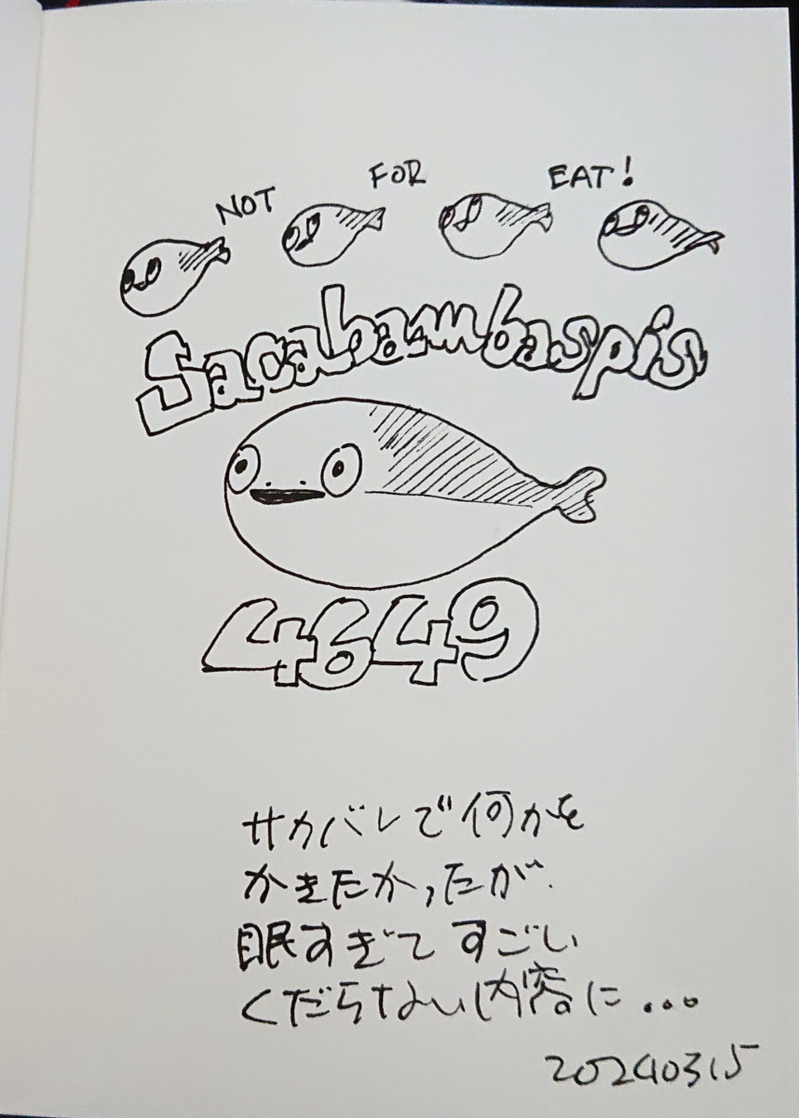 NOT FOR EAT!
Sacabambaspis
4649
サカバンで何かを
かきたかったが、
眠すぎてすごい
くだらない内容に...
20240315